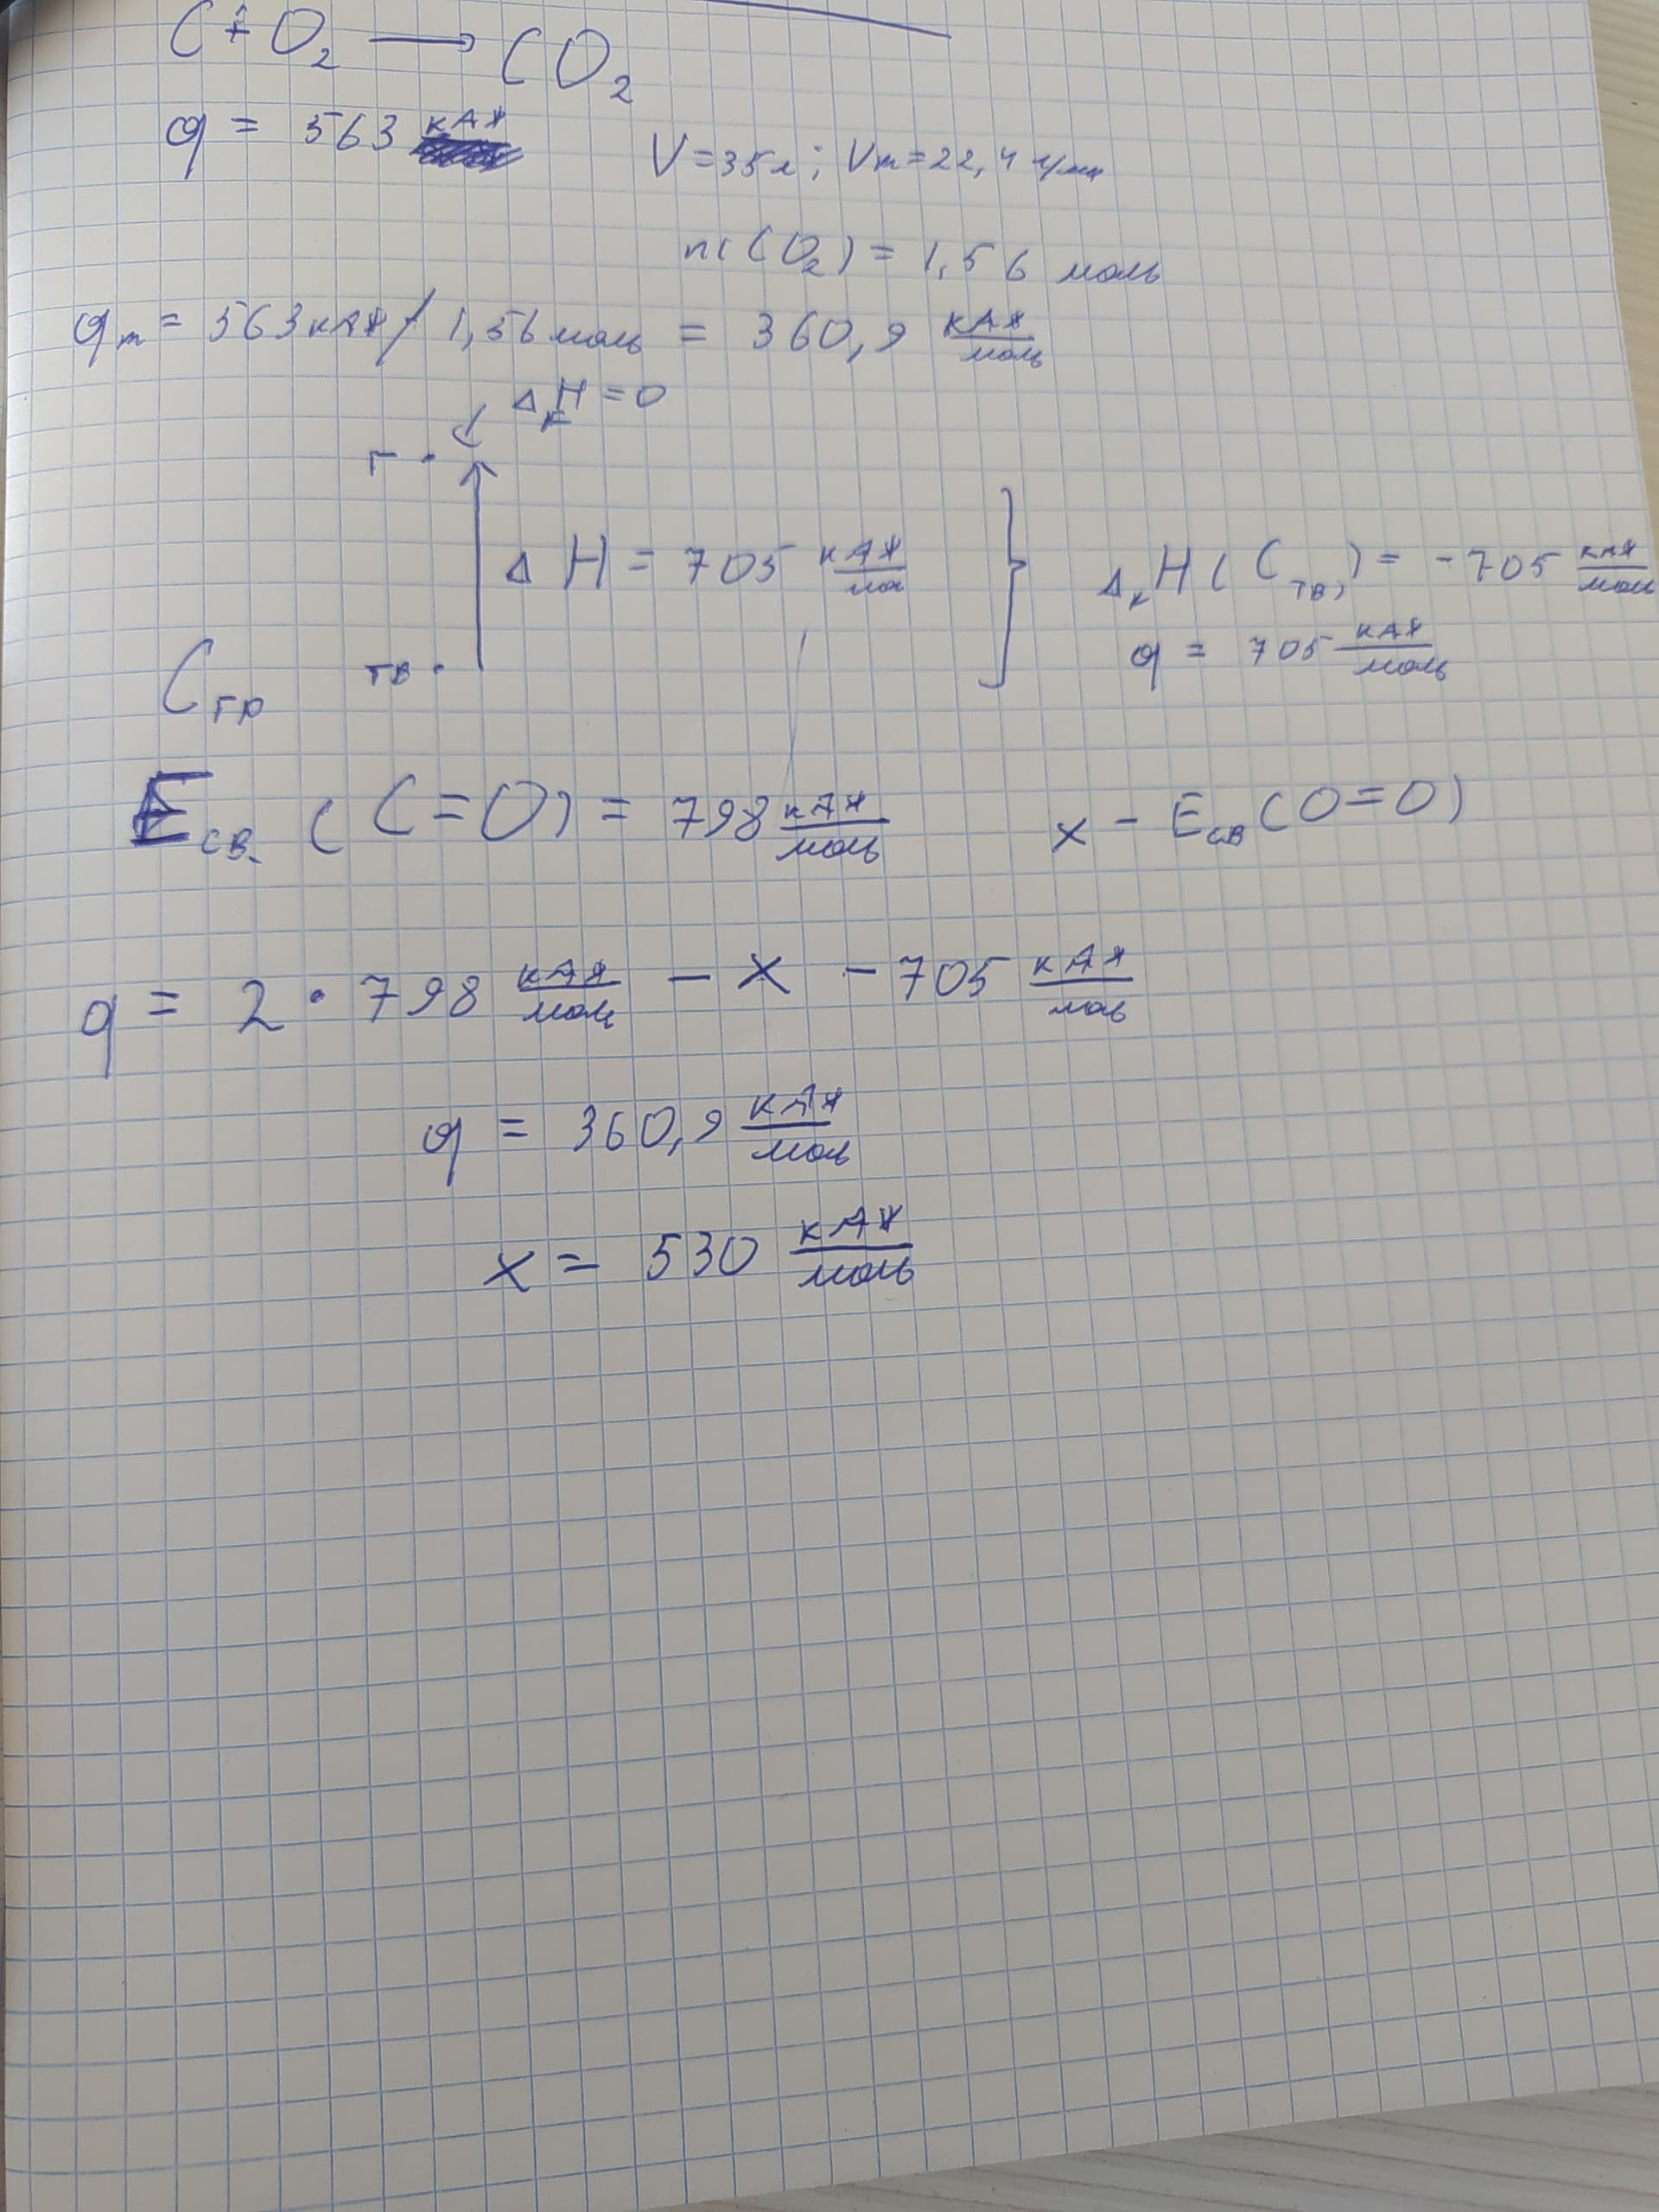 C + O₂ → CO₂
q = 563 кДж
V = 35 л; Vm = 22,4 л/моль
n(CO₂) = 1,56 моль
qm = 563 кДж / 1,56 моль = 360,9 кДж/моль
ΔкH = 0
г.
ΔH = 705 кДж/мол } ΔкH(Cтв) = -705 кДж/моль
q = 705 кДж/моль
Cгр тв.
Eсв. (C=O) = 798 кДж/моль x - Eсв (O=O)
q = 2 · 798 кДж/моль - x - 705 кДж/моль
q = 360,9 кДж/моль
x = 530 кДж/моль